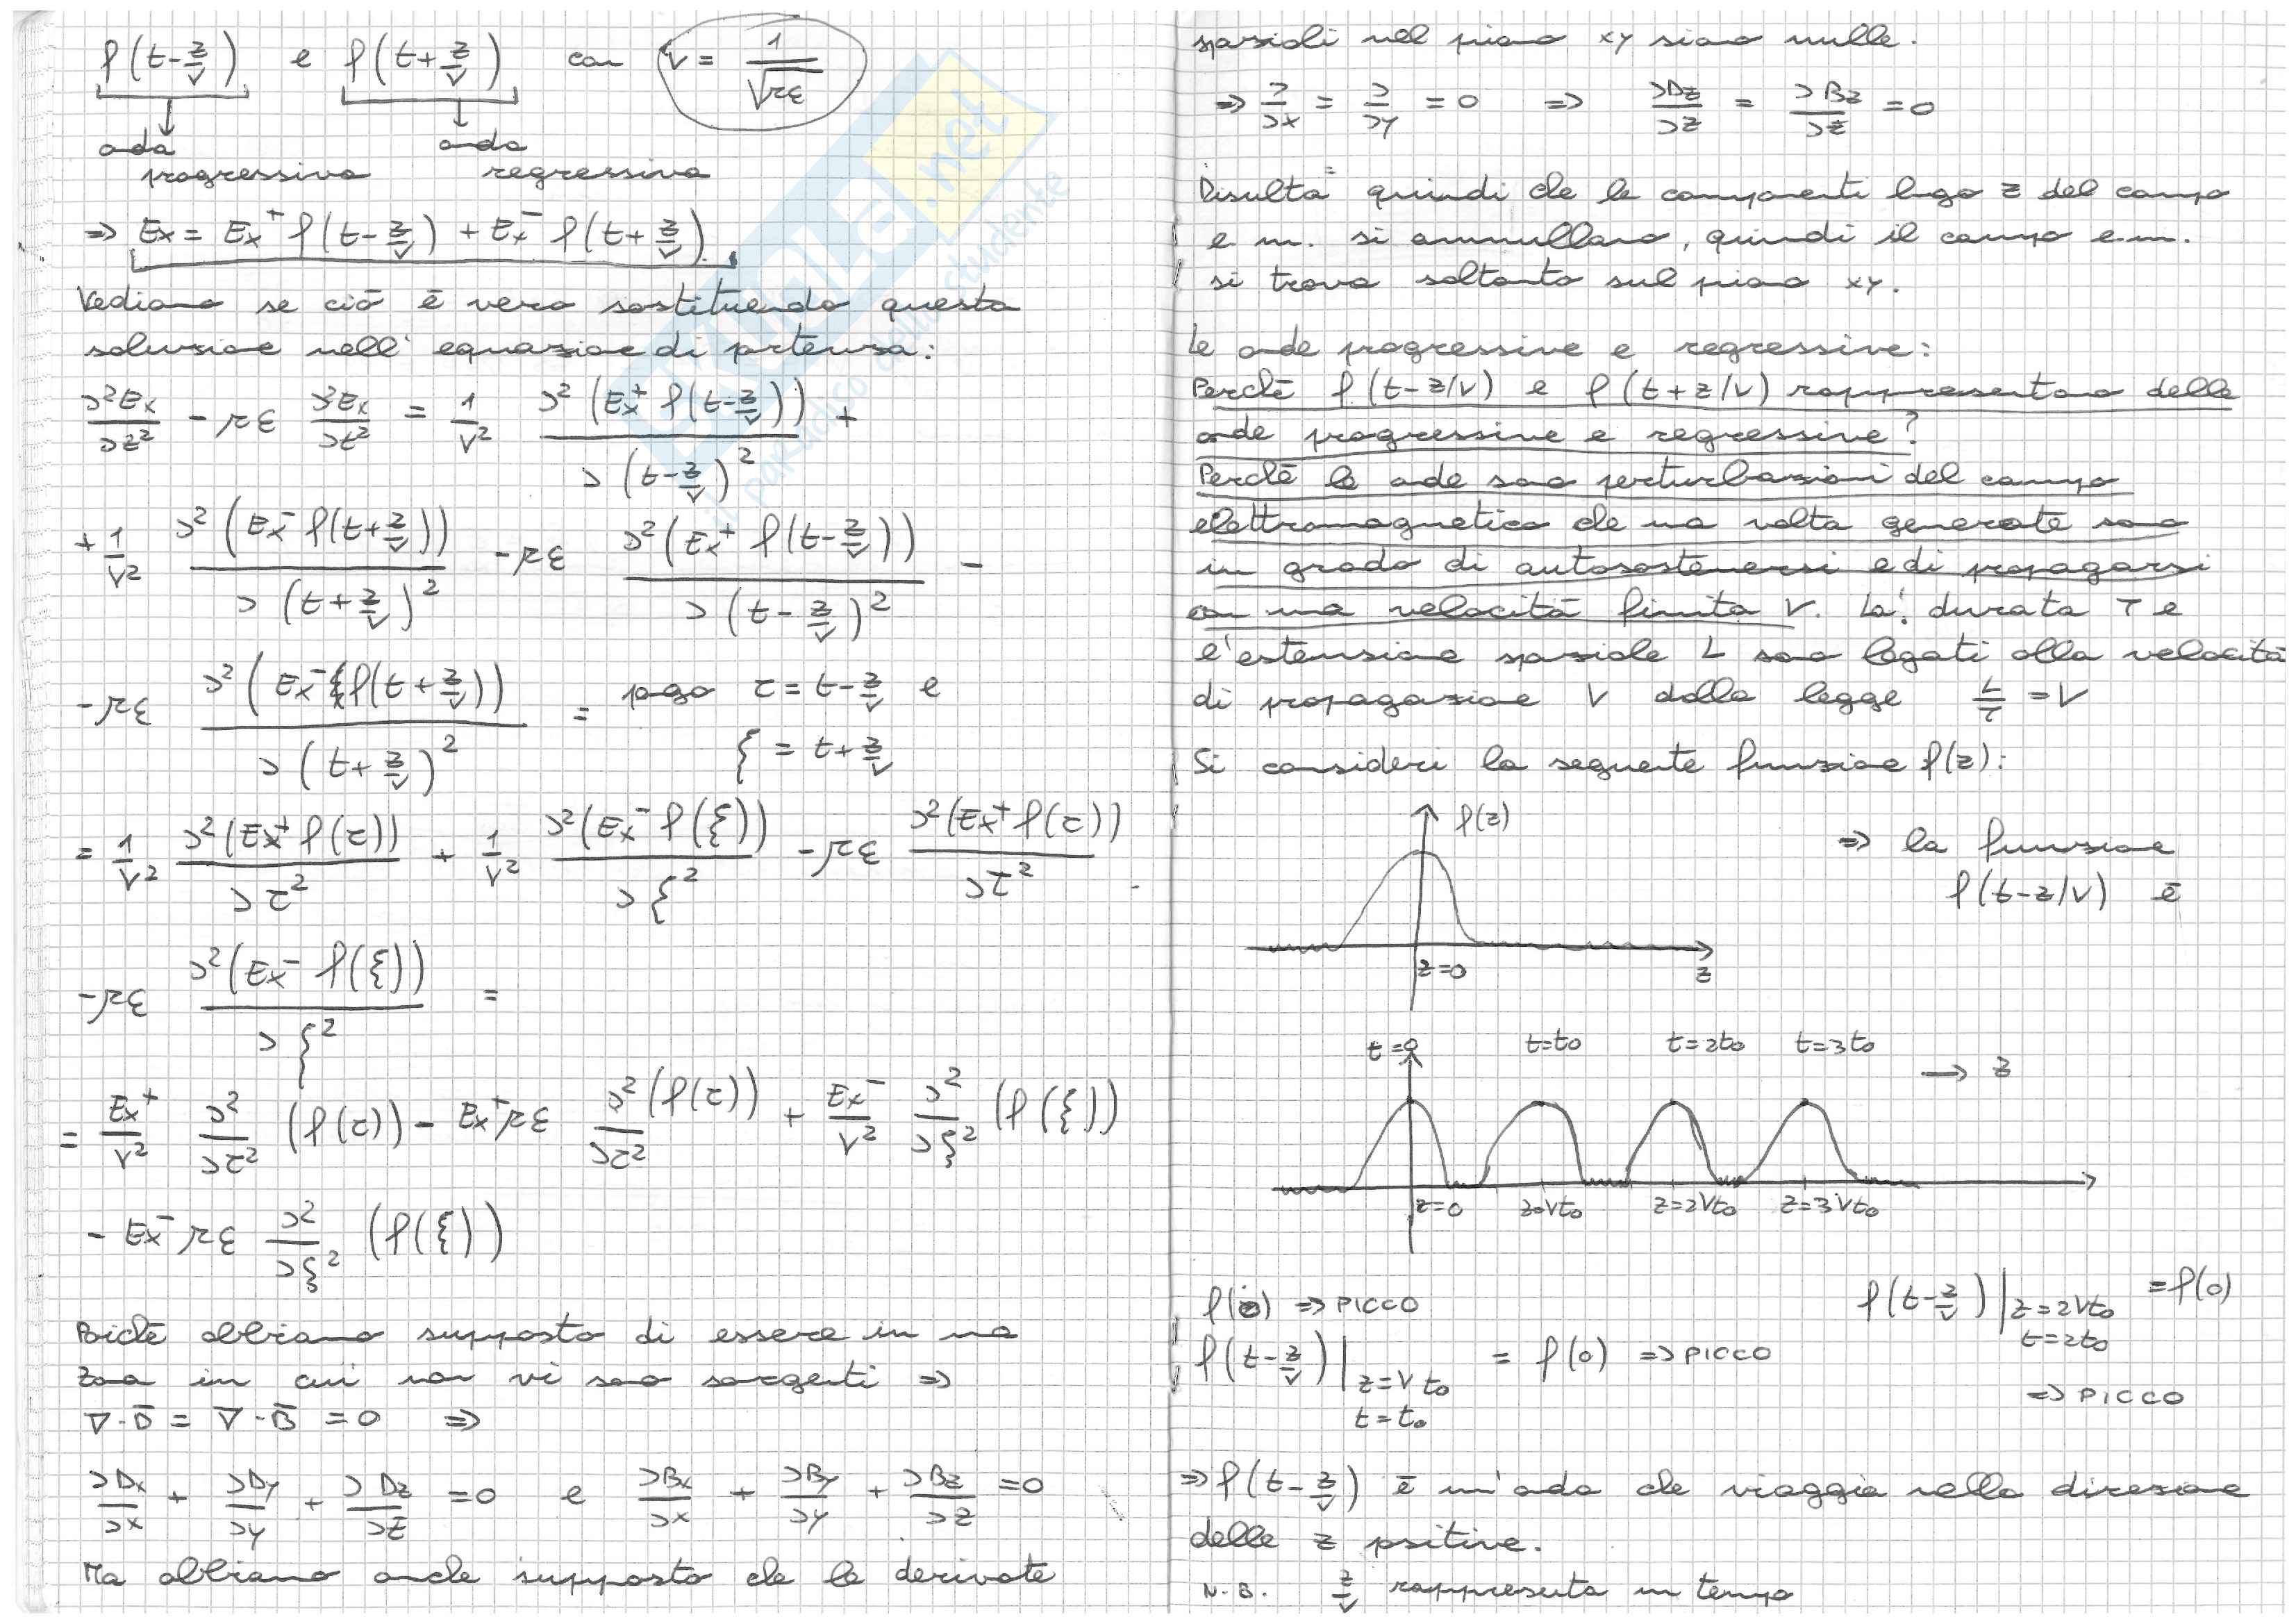 f(t-z/v) e f(t+z/v) con v = 1/√με
onda progressiva
onda regressiva
⇒ Ex = Ex⁺ f(t-z/v) + Ex⁻ f(t+z/v)
Vediamo se ciò è vero sostituendo questa
soluzione nell'equazione di partenza:
∂²Ex/∂z² - με ∂²Ex/∂t² = 1/v² ∂²(Ex⁺ f(t-z/v))/∂(t-z/v)² +
+ 1/v² ∂²(Ex⁻ f(t+z/v))/∂(t+z/v)² - με ∂²(Ex⁺ f(t-z/v))/∂(t-z/v)² -
- με ∂²(Ex⁻ f(t+z/v))/∂(t+z/v)² = pongo τ = t-z/v e
ξ = t+z/v
= 1/v² ∂²(Ex⁺ f(τ))/∂τ² + 1/v² ∂²(Ex⁻ f(ξ))/∂ξ² - με ∂²(Ex⁺ f(τ))/∂τ²
- με ∂²(Ex⁻ f(ξ))/∂ξ² =
= Ex⁺/v² ∂²/∂τ² (f(τ)) - Ex⁺ με ∂²(f(τ))/∂τ² + Ex⁻/v² ∂²/∂ξ² (f(ξ))
- Ex⁻ με ∂²/∂ξ² (f(ξ))
Poichè abbiamo supposto di essere in una
zona in cui non vi sono sorgenti ⇒
∇·D̄ = ∇·B̄ = 0 ⇒
∂Dx/∂x + ∂Dy/∂y + ∂Dz/∂z = 0 e ∂Bx/∂x + ∂By/∂y + ∂Bz/∂z = 0
Ma abbiamo anche supposto che le derivate
spaziali nel piano xy siano nulle.
⇒ ∂/∂x = ∂/∂y = 0 ⇒ ∂Dz/∂z = ∂Bz/∂z = 0
Risulta quindi che le componenti lungo z del campo
e.m. si annullano, quindi il campo e.m.
si trova soltanto sul piano xy.
Le onde progressive e regressive:
Perchè f(t-z/v) e f(t+z/v) rappresentano delle
onde progressive e regressive?
Perchè le onde sono perturbazioni del campo
elettromagnetico che una volta generate sono
in grado di autosostenersi e di propagarsi
con una velocità finita V. La durata T e
l'estensione spaziale L sono legati alla velocità
di propagazione V dalla legge L/T = V
Si consideri la seguente funzione f(z):
f(z)
⇒ la funzione
f(t-z/v) è
z=0
z
t=0 t=t0 t=2t0 t=3t0
→ z
z=0 z=vt0 z=2vt0 z=3vt0
f(0) ⇒ PICCO
f(t-z/v)| z=2vt0 t=2t0 = f(0)
⇒ PICCO
f(t-z/v)| z=vt0 t=t0 = f(0) ⇒ PICCO
⇒ f(t-z/v) è un'onda che viaggia nella direzione
delle z positive.
N.B. z/v rappresenta un tempo
.net